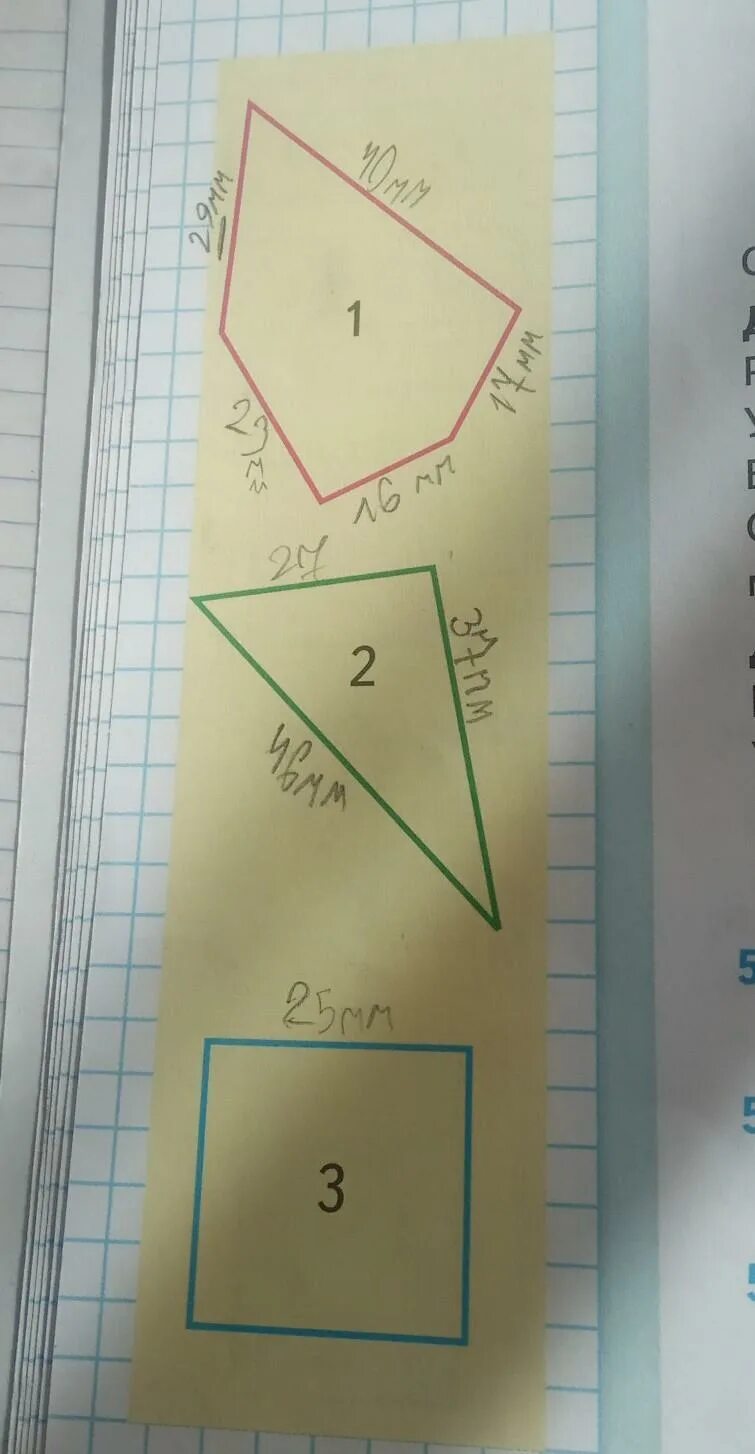 40мм
29мм
1
17мм
23
мм
16 мм
27
37мм
2
46мм
25мм
3